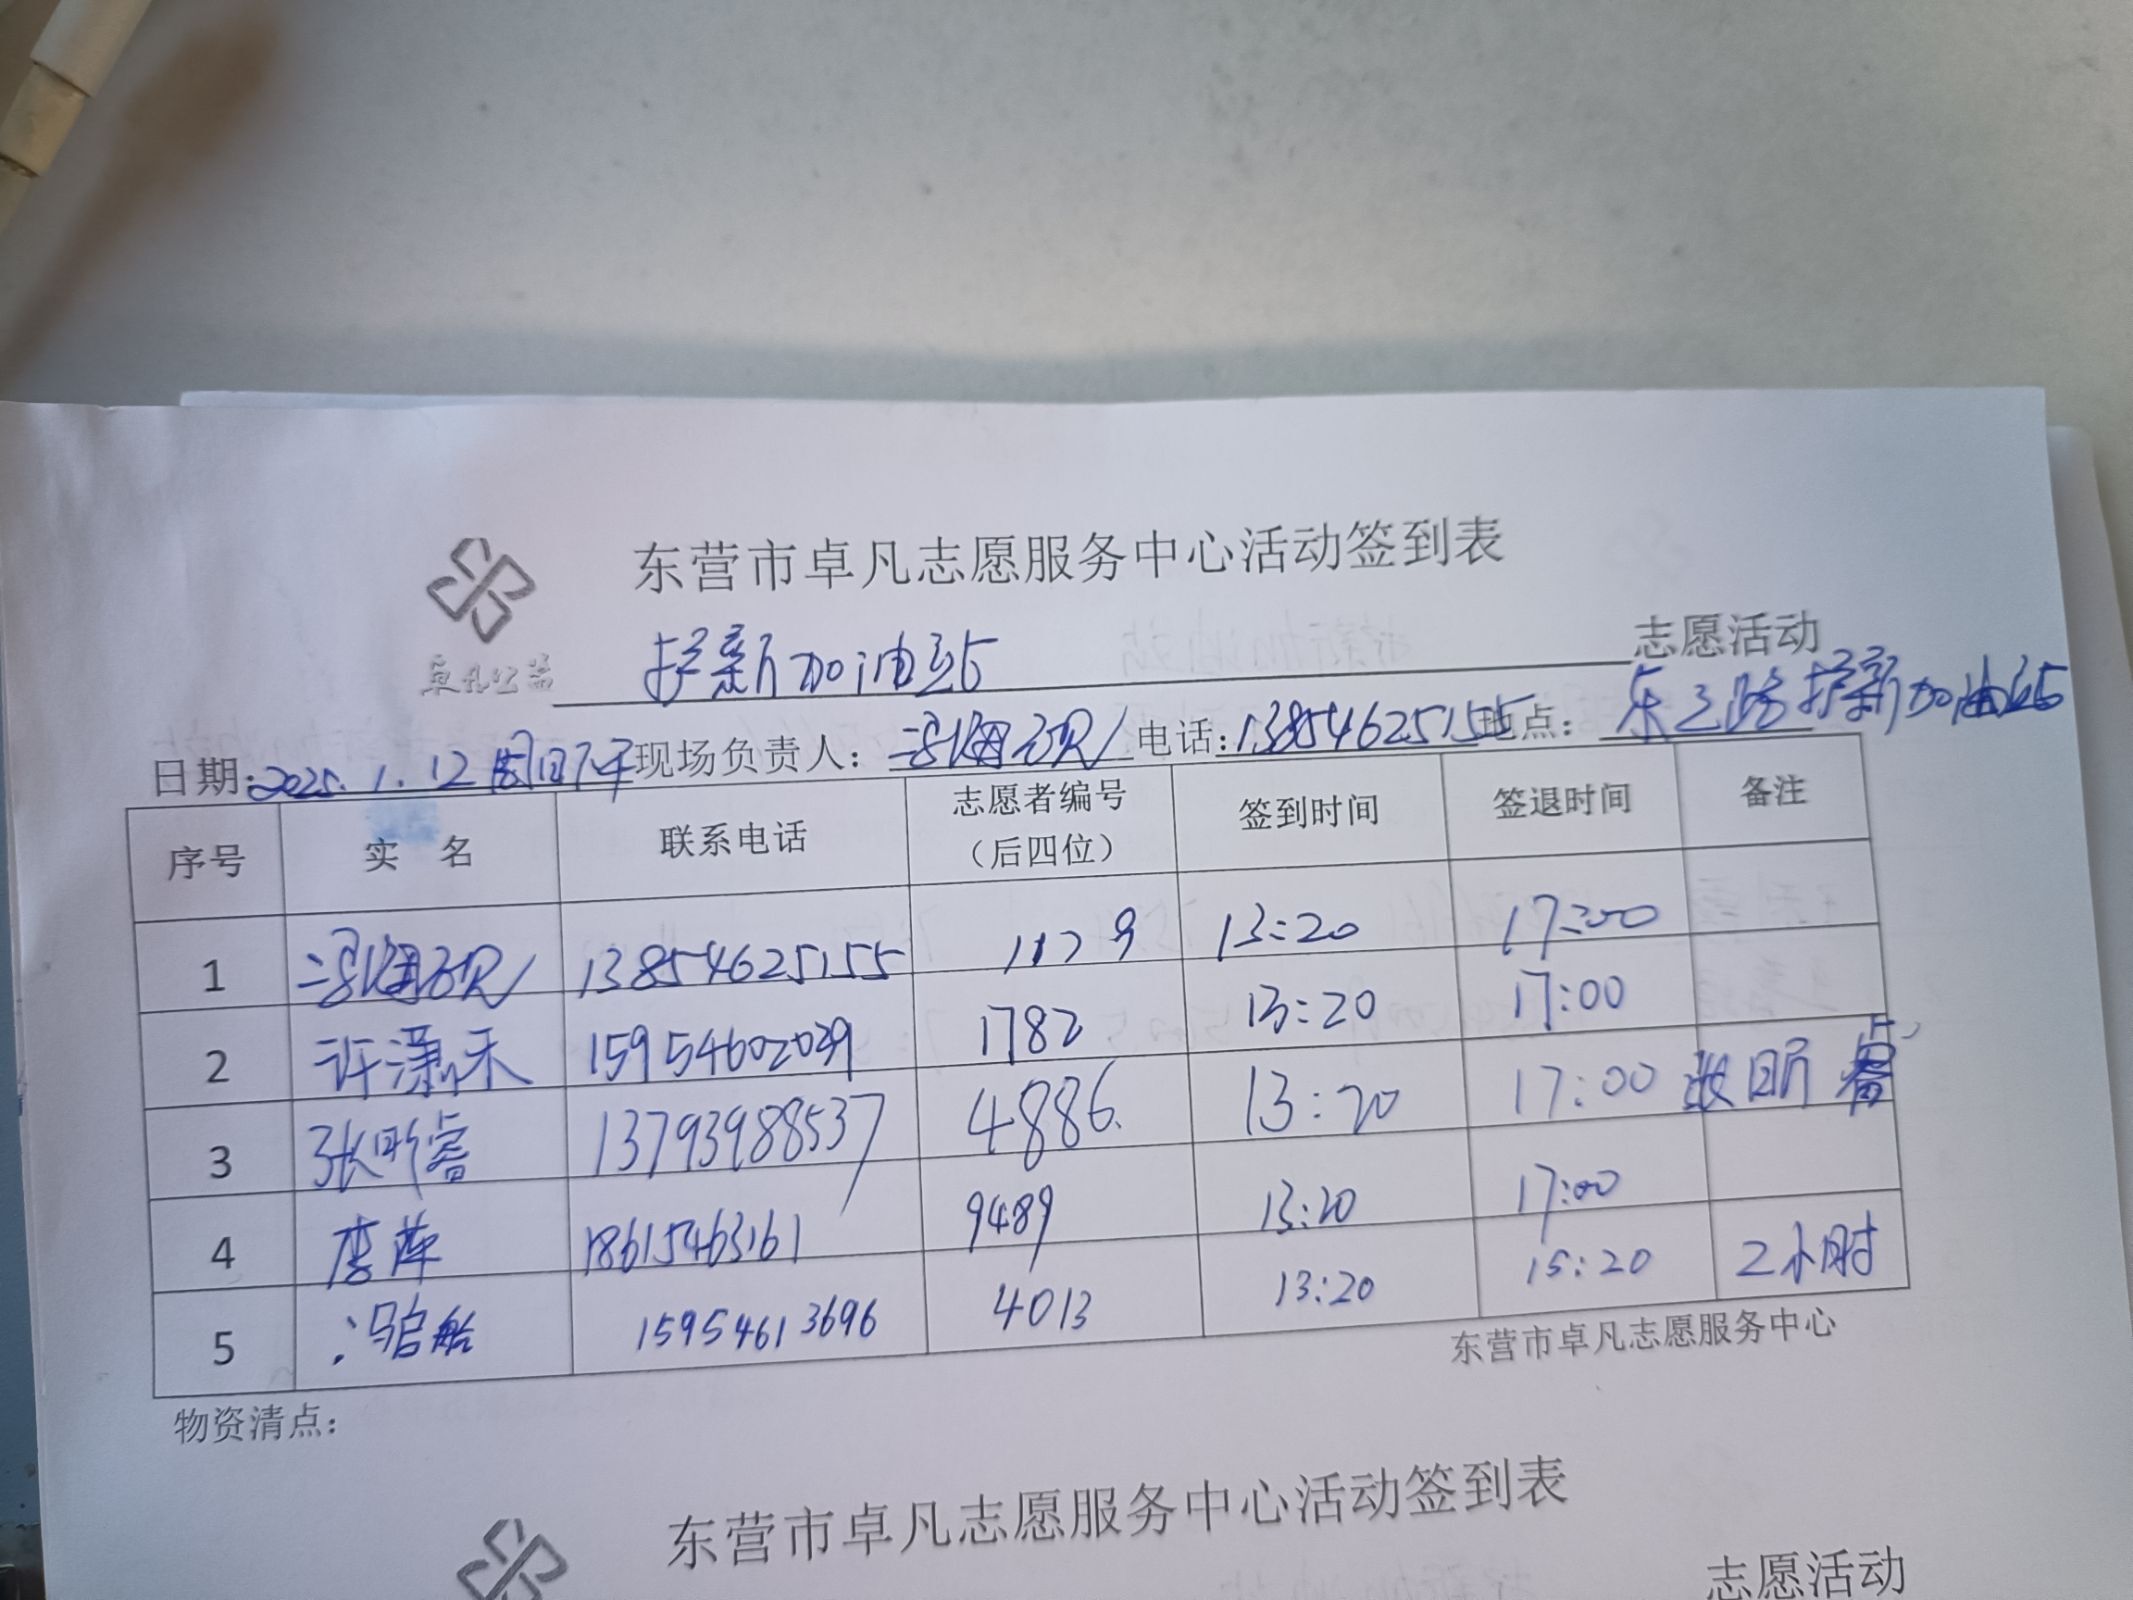 东营市卓凡志愿服务中心活动签到表
卓凡公益
护新加油站 志愿活动
日期:2025.1.12周日下午 现场负责人: 冯海砚 电话:13854625155 地点: 东三路护新加油站
序号 实 名 联系电话 志愿者编号（后四位） 签到时间 签退时间 备注
1 冯海砚 13854625155 13:20 17:00
2 许潇禾 15954602039 1782 13:20 17:00
3 张昕睿 13793988537 4886. 13:20 17:00 张昕睿
4 李萍 18615463161 9489 13:20 17:00
5 冯启航 15954613696 4013 13:20 15:20 2小时
东营市卓凡志愿服务中心
物资清点：
东营市卓凡志愿服务中心活动签到表
志愿活动